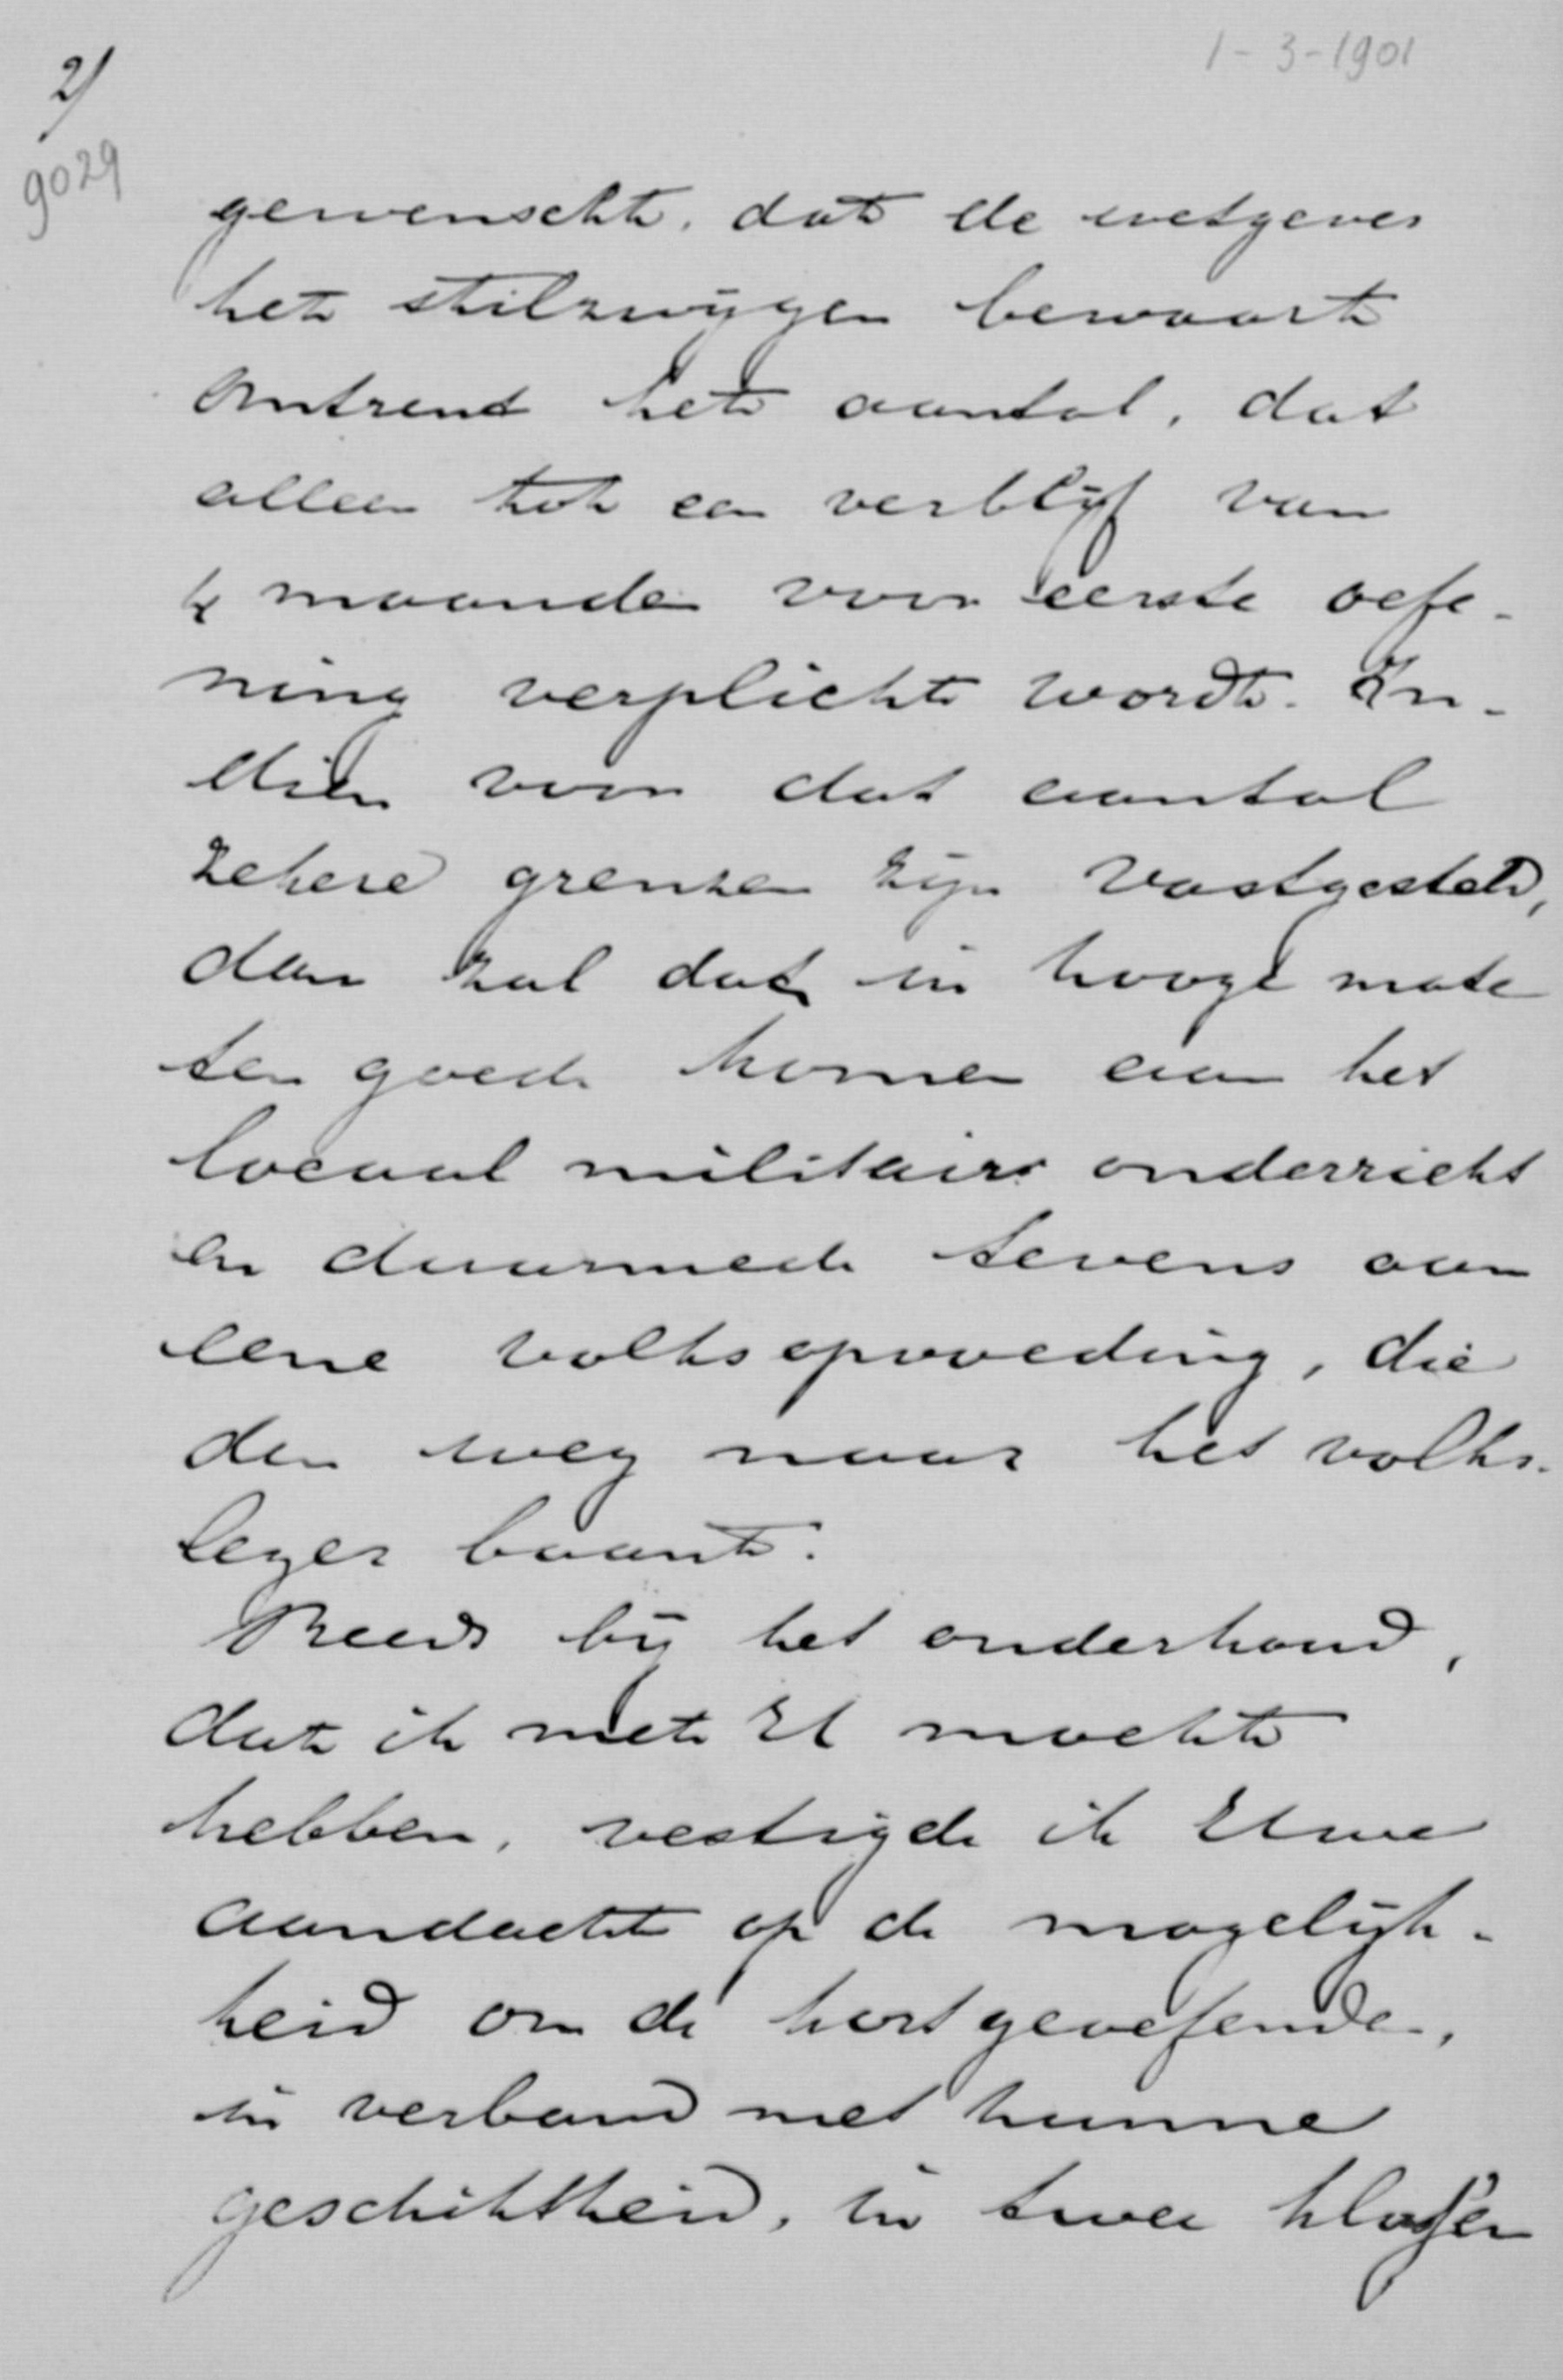 1-3-1901
2/
9029
gewenscht, dat de wetgever
het stilzwijgen bewaart
omtrent het aantal, dat
alleen tot een verblijf van
4 maanden voor eerste oefe-
ning verplicht wordt. In-
dien voor dat aantal
zekere grenzen zijn vastgesteld,
dan zal dat in hooge mate
ten goede komen aan het
locaal militair onderricht
en daarmede tevens aan
eene volksopvoeding, die
den weg naar het volks-
leger baant.
Reeds bij het onderhoud,
dat ik met U mocht
hebben, vestigde ik Uwe
aandacht op de mogelijk-
heid om de kortgeoefenden,
in verband met hunne
geschiktheid, in twee klassen